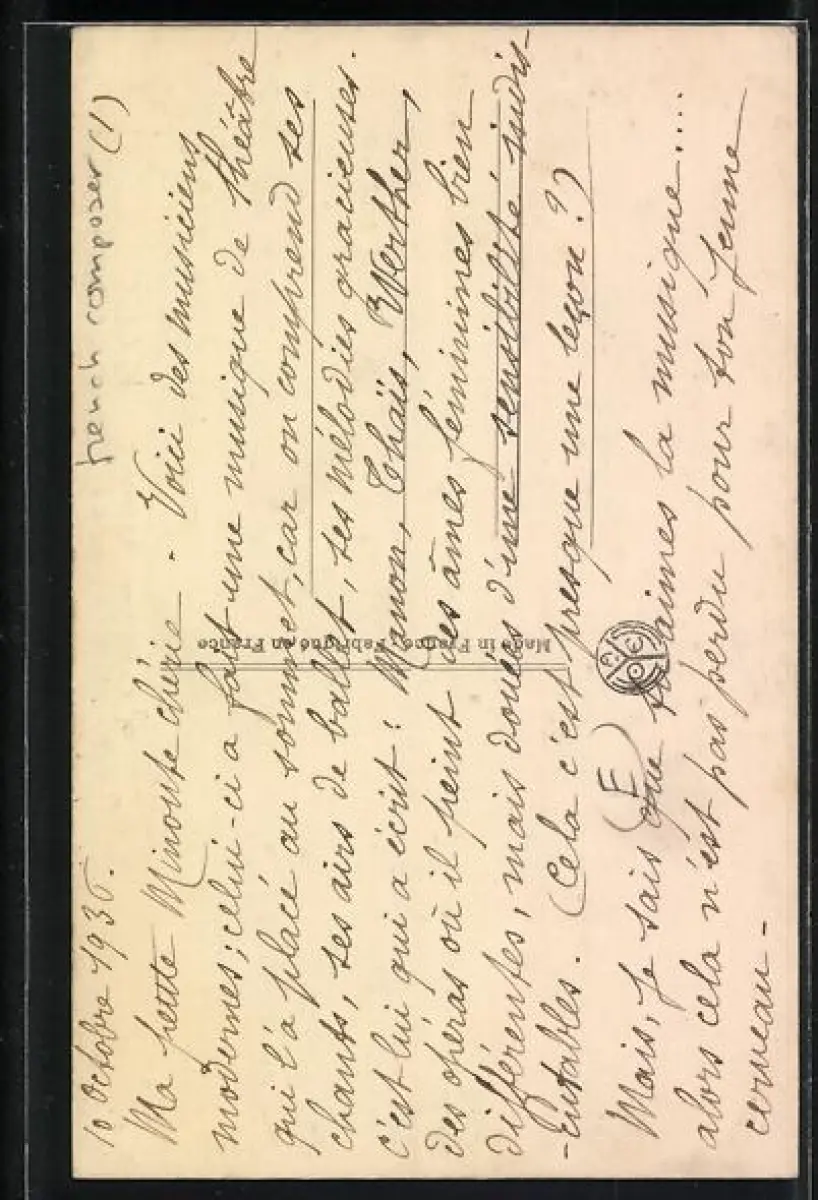 french composer (1)
10 Octobre 1936.
Ma petite Minoute chérie - Voici des musiciens
modernes; celui-ci a fait une musique de théâtre
qui l'a placé au sommet, car on comprend ses
chants, ses airs de ballet, ses mélodies gracieuses.
c'est lui qui a écrit: Manon, Thaïs, Werther,
des opéras où il peint des âmes féminines bien
différentes, mais douées d'une sensibilité indis-
-cutables. (Cela c'est presque une leçon?)
Mais, je sais que tu aimes la musique....
alors cela n'est pas perdu pour ton jeune
cerveau-
(E)
Made in France - Fabriqué en France